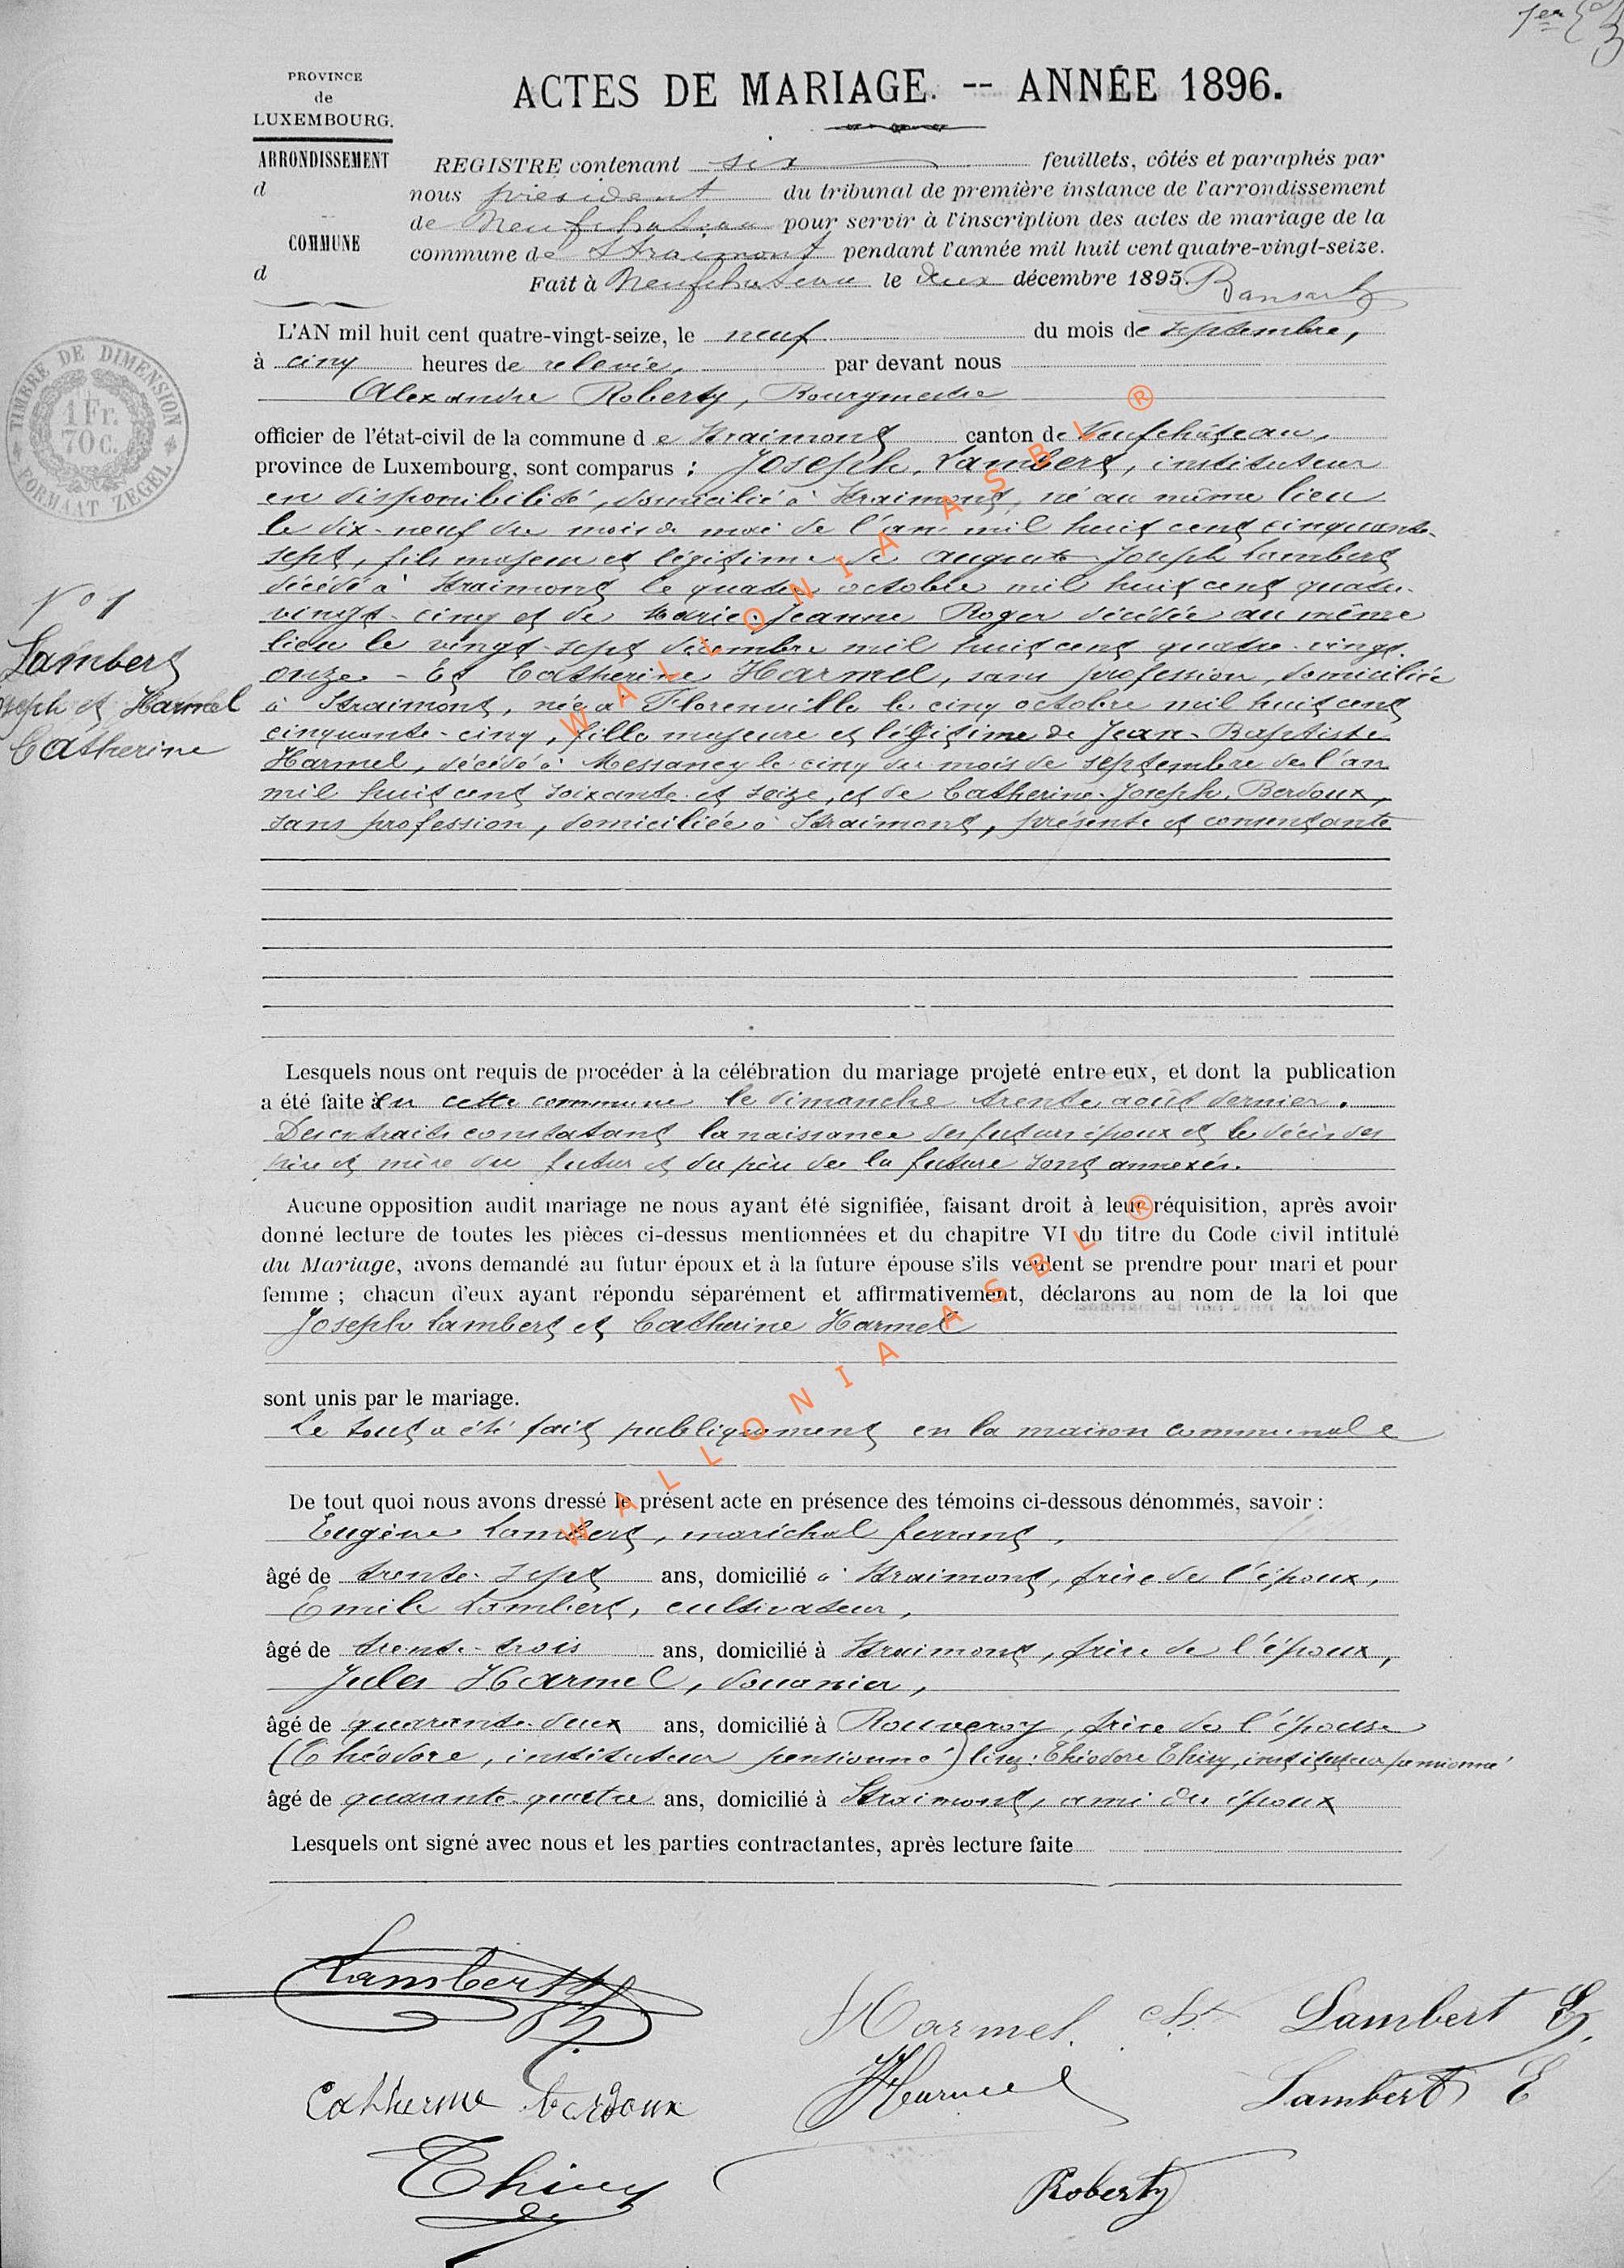 1er
PROVINCE
de
LUXEMBOURG.
ARRONDISSEMENT
d
COMMUNE
d
ACTES DE MARIAGE. -- ANNÉE 1896.
REGISTRE contenant six feuillets, côtés et paraphés par
nous président du tribunal de première instance de l'arrondissement
de Neufchateau pour servir à l'inscription des actes de mariage de la
commune de Straimont pendant l'année mil huit cent quatre-vingt-seize.
Fait à Neufchateau le deux décembre 1895. Bansart
TIMBRE DE DIMENSION
1 Fr.
70 c.
FORMAAT ZEGEL
L'AN mil huit cent quatre-vingt-seize, le neuf du mois de septembre,
à cinq heures de relevée, par devant nous
Alexandre Roberty, Bourgmestre
officier de l'état-civil de la commune d e Straimont canton de Neufchâteau,
province de Luxembourg, sont comparus : Joseph Lambert, instituteur
en disponibilité, domicilié à Straimont, né au même lieu
le dix-neuf du mois de mai de l'an mil huit cent cinquante-
sept, fils majeur et légitime de Auguste Joseph Lambert
décédé à Straimont le quatre octobre mil huit cent quatre-
vingt-cinq et de Marie-Jeanne Roger décédée au même
lieu le vingt-sept décembre mil huit cent quatre-vingt-
onze. - Et Catherine Harmel, sans profession, domiciliée
à Straimont, née à Florenville le cinq octobre mil huit cent
cinquante-cinq, fille majeure et légitime de Jean-Baptiste
Harmel, décédé à Messancy le cinq du mois de septembre de l'an
mil huit cent soixante et seize, et de Catherine-Joseph Berdoux,
sans profession, domiciliée à Straimont, présente et consentante
N° 1
Lambert
Joseph et Harmel
Catherine
Lesquels nous ont requis de procéder à la célébration du mariage projeté entre eux, et dont la publication
a été faite à en cette commune le dimanche trente août dernier.
Des extraits constatant la naissance des futurs époux et le décès des
père et mère du futur et du père de la future sont annexés.
Aucune opposition audit mariage ne nous ayant été signifiée, faisant droit à leur réquisition, après avoir
donné lecture de toutes les pièces ci-dessus mentionnées et du chapitre VI du titre du Code civil intitulé
du Mariage, avons demandé au futur époux et à la future épouse s'ils veulent se prendre pour mari et pour
femme ; chacun d'eux ayant répondu séparément et affirmativement, déclarons au nom de la loi que
Joseph Lambert et Catherine Harmel
sont unis par le mariage.
Le tout a été fait publiquement en la maison communale
De tout quoi nous avons dressé le présent acte en présence des témoins ci-dessous dénommés, savoir :
Eugène Lambert, maréchal ferrant,
âgé de trente-sept ans, domicilié à Straimont, frère de l'époux,
Emile Lambert, cultivateur,
âgé de trente-trois ans, domicilié à Straimont, frère de l'époux,
Jules Harmel, douanier,
âgé de quarante-deux ans, domicilié à Rouveroy, frère de l'épouse
(Théodore, instituteur pensionné) lisez: Théodore Thiry, instituteur pensionné
âgé de quarante-quatre ans, domicilié à Straimont, ami du époux
Lesquels ont signé avec nous et les parties contractantes, après lecture faite
Lambert
Harmel. Lambert E.
Catherine berdoux JHarmel Lambert E
Thiry Roberty
WALLONIA ASBL ®
WALLONIA ASBL ®